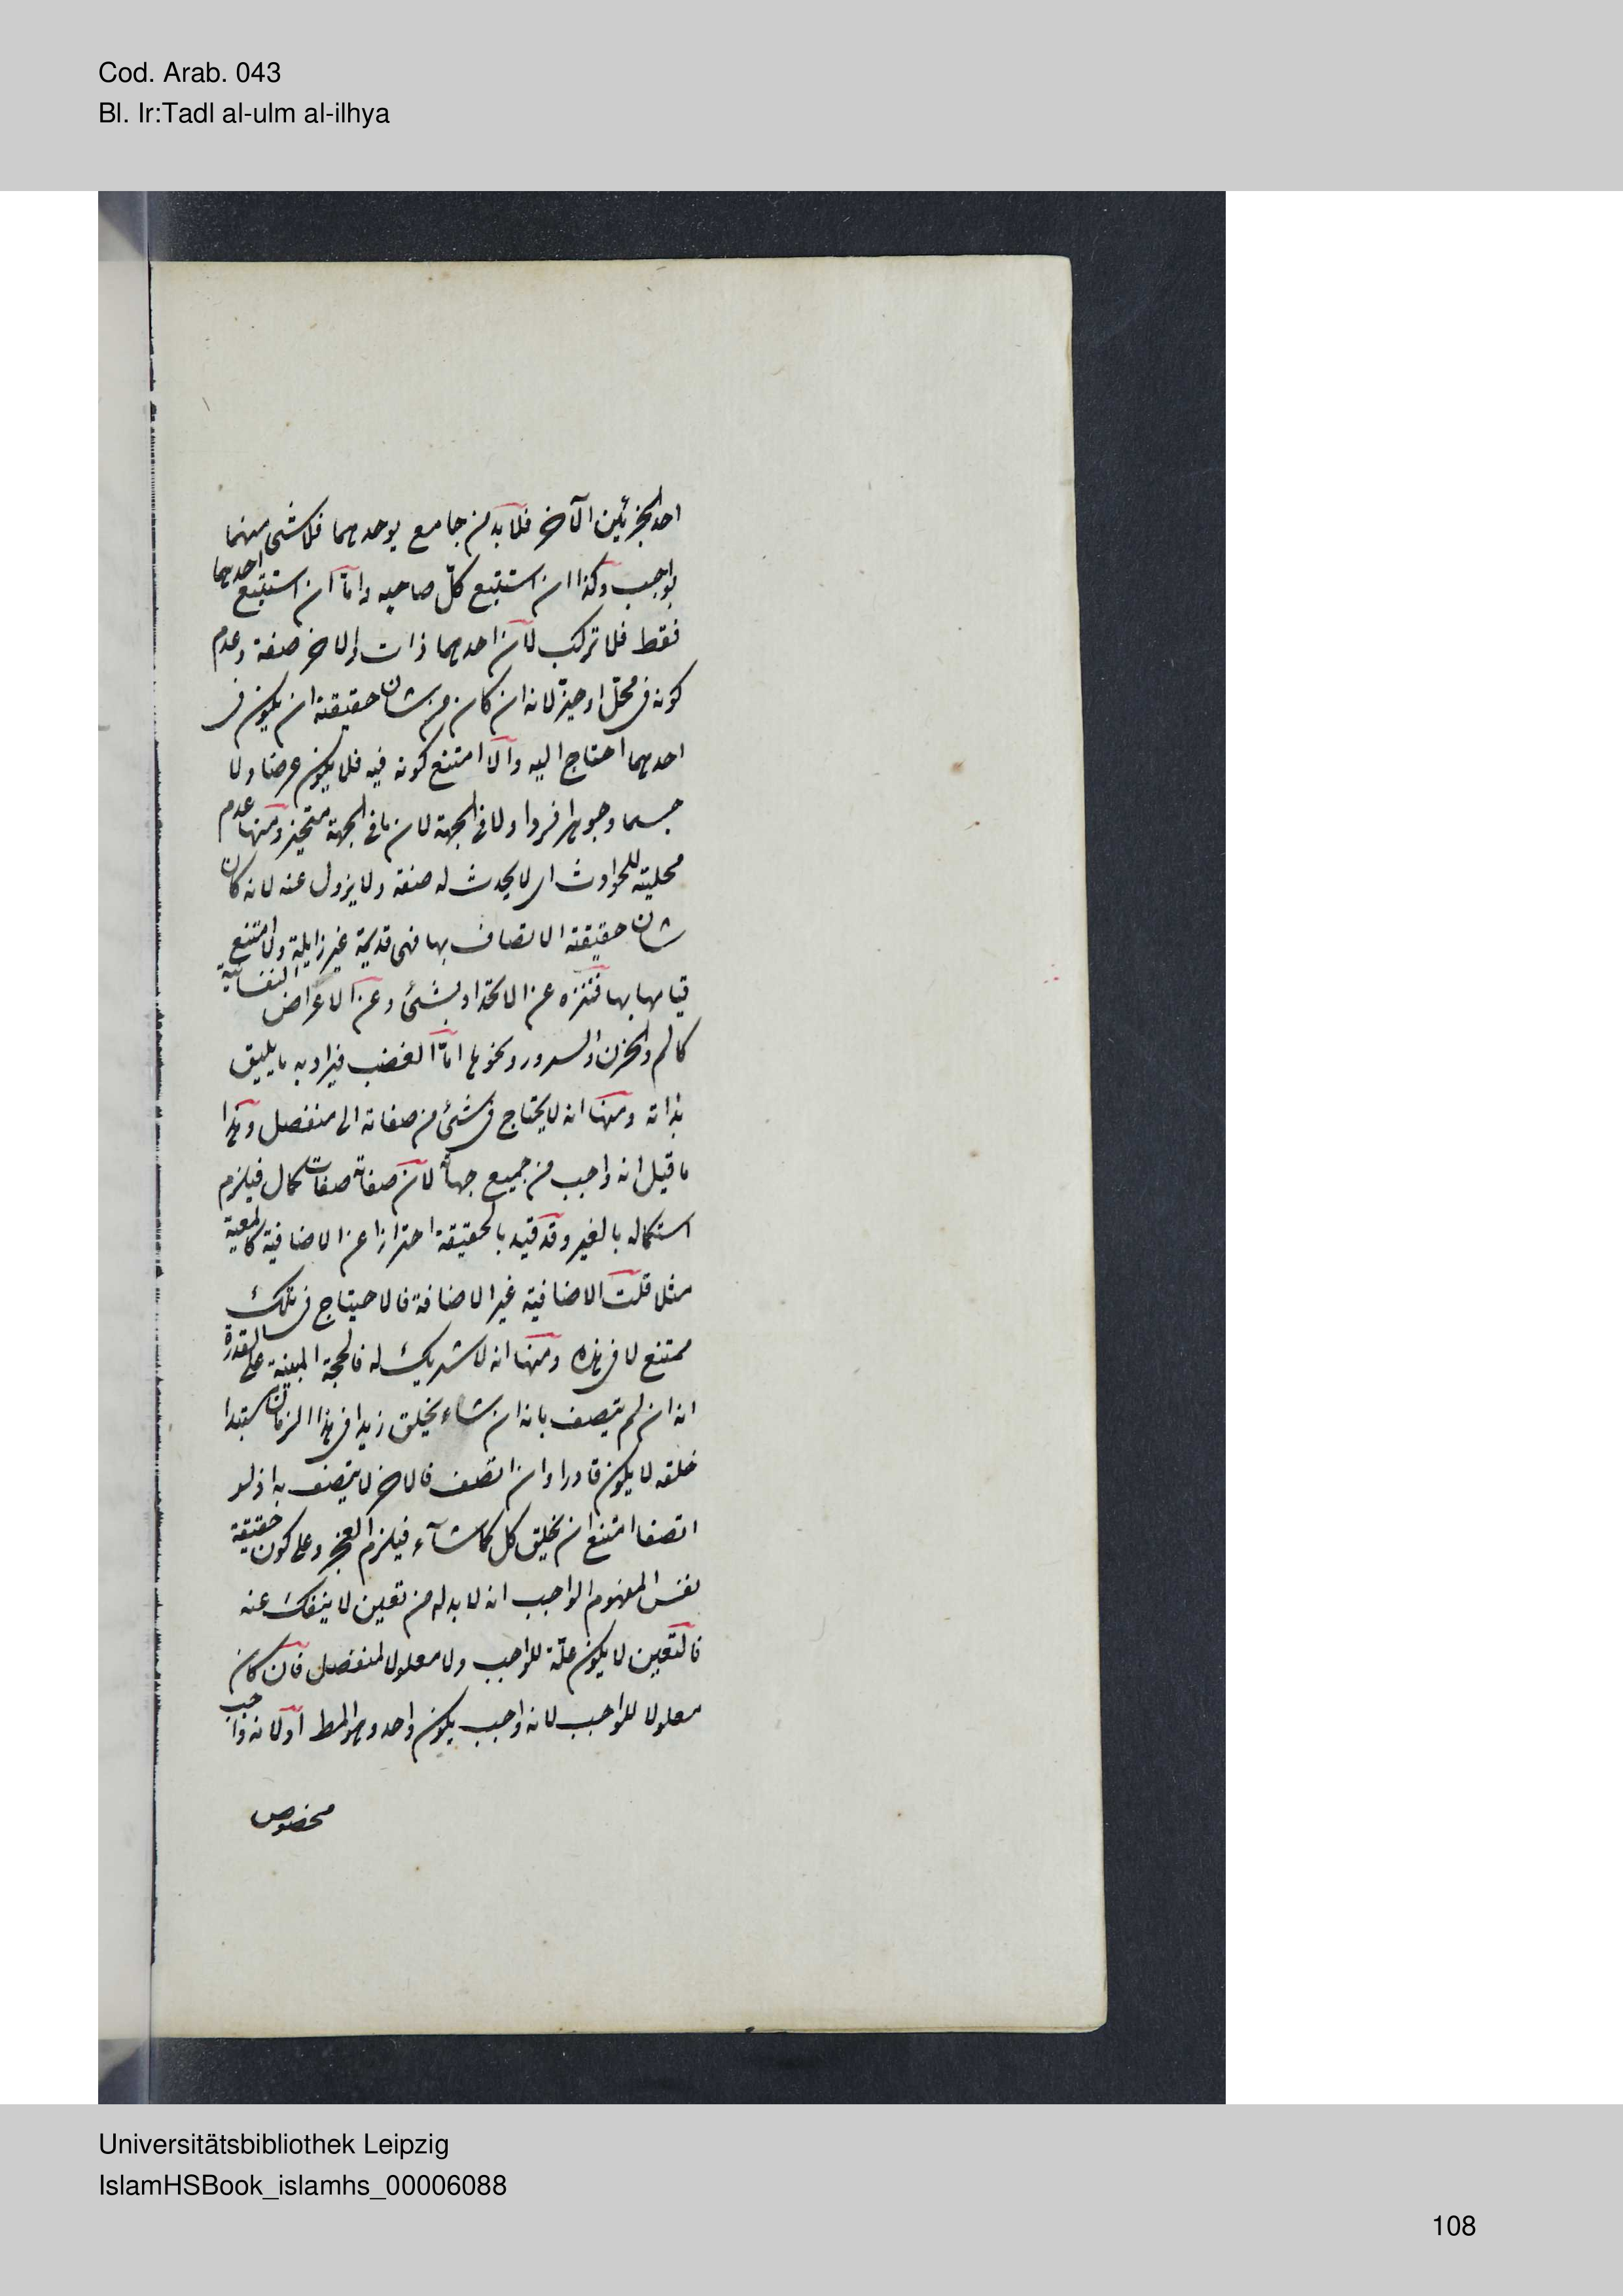 Cod. Arab. 043
Bl. Ir:Tadl al-ulm al-ilhya
احد الجزئين الآخر فلا بد من جامع يوحدهما فلا شئ منهما
بواجب وكذا ان استتبع كل صاحبه واما ان استتبع احدهما
فقط فلا تركب لان احدهما ذات والاخر صفة وعدم
كونه فى محل او حيز لانه ان كان من شان حقيقته ان يكون فى
احدهما احتاج اليه والا امتنع كونه فيه فلا يكون عرضا ولا
جسما وجوهرا فردا ولا فى الجهة لان ما فى الجهة متحيز ومنها عدم
محليته للحوادث اى لا يحدث له صفة ولا يزول عنه لانه كان
شان حقيقته الاتصاف بها فهى قديمة غير زايلة والا امتنع
قيامها بها فتنزه عن الاتحاد بشئ وعن الاعراض النفسانية
كالم والحزن والسرور ونحوها اما الغضب فيراد به ما يليق
بذاته ومنها انه لا يحتاج فى شئ من صفاته الى منفصل وهذا
ما قيل انه واجب من جميع جهاته لان صفاته صفات كمال فيلزم
استكماله بالغير وقد قيد بالحقيقة احترازا عن الاضافية كالمعية
مثلا قلت الاضافية غير الاضافة فالاحتياج فى تلك
ممتنع لا فى هذه ومنها انه لا شريك له فالحجة المبنية على القدرة
انه ان لم يتصف بانه ان شاء يخلق زيدا فى هذا الزمان مستبدا
خلقه لا يكون قادرا وان اتصف فالاخر لا يتصف به اذ لو
اتصفا امتنع ان يخلق كل كما شآء فيلزم العجز وعلى كون حقيقة
نفس المفهوم الواجب انه لا بد له من تعين لا ينفك عنه
فالتعين لا يكون علة للواجب ولا معلولا لمنفصل فان كان
معلولا للواجب لانه واجب يكون واحد وهو المط او لانه واجب
مخصوص
Universitätsbibliothek Leipzig
IslamHSBook_islamhs_00006088
108